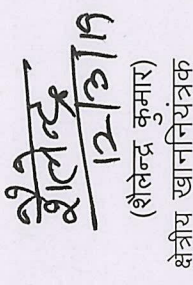 शैलेन्द्र
12/3/19
(शैलेन्द्र कुमार)
क्षेत्रीय खाननियंत्रक